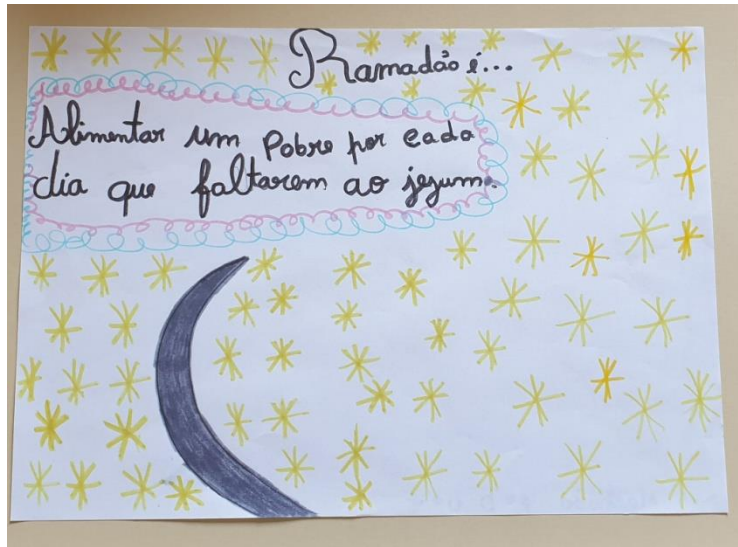 Ramadão é...
Alimentar um pobre por cada
dia que faltarem ao jejum.